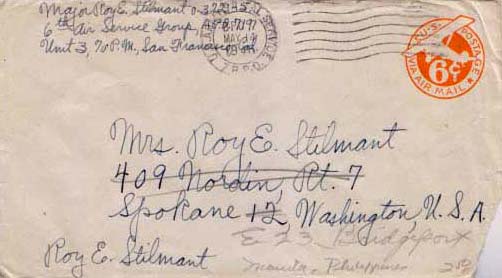 Major Roy E. Stilmant
6th Air Service Group,
Unit 3, % P.M., San Francisco
U.S. POSTAGE
6¢
VIA AIR MAIL
Mrs. Roy E. Stilmant
409 Nordin, Rt. 7
Spokane 12, Washington, U.S.A.
E 23 Bridgeport
Roy E. Stilmant
Manila Philippines